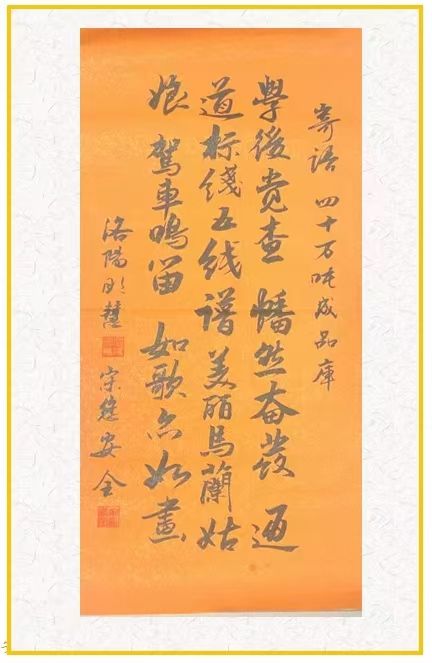 寄语 四十万吨成品库
學後觉查 幡然奋發 通
道标綫五线谱美丽馬蘭姑
娘 駕車鳴笛 如歌亦如畫
洛陽 慧 宋 安全